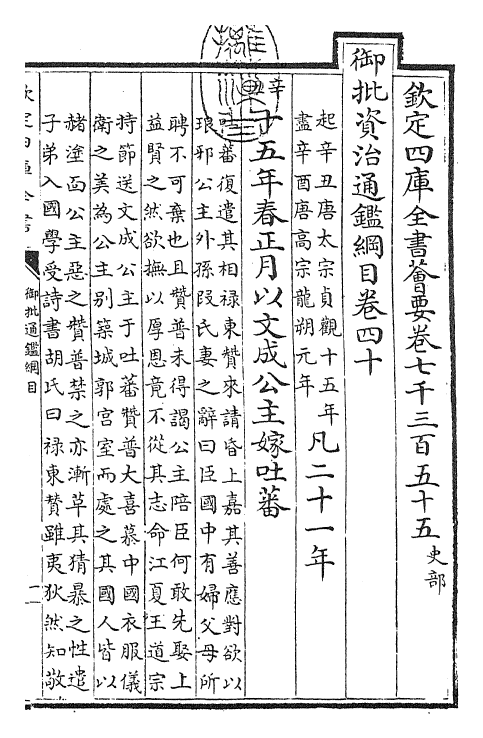 欽定四庫全書薈要卷七千三百五十五 史部
御批資治通鑑綱目卷四十
起辛丑唐太宗貞觀十五年
盡辛酉唐高宗龍朔元年
凡二十一年
辛
十五年春正月以文成公主嫁吐蕃
吐蕃復遣其相禄東贊來請昏上嘉其善應對欲以
琅邪公主外孫段氏妻之辭曰臣國中有婦父母所
聘不可棄也且贊普未得謁公主陪臣何敢先娶上
益賢之然欲撫以厚恩竟不從其志命江夏王道宗
持節送文成公主于吐蕃贊普大喜慕中國衣服儀
衛之美為公主别築城郭宮室而處之其國人皆以
赭塗面公主惡之贊普禁之亦漸革其猜暴之性遣
子弟入國學受詩書胡氏曰禄東贊雖夷狄然知敬
欽定四庫全書
御批通鑑綱目
一